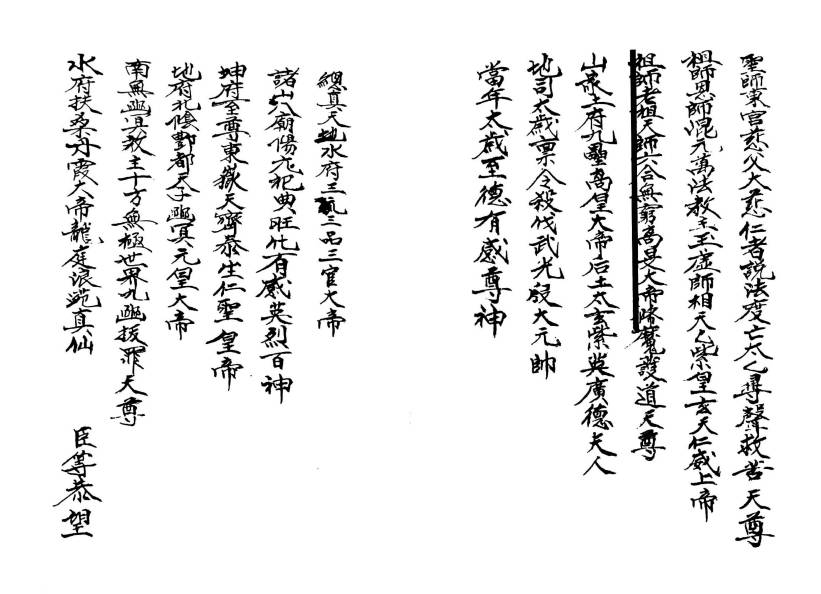 聖師東宮慈父大慈仁者說法度亡太乙尋聲救苦天尊
祖師恩師混元萬法教主玉虛師相天乙紫皇玄天仁威上帝
祖師老祖天師六合無窮高旻大帝降魔護道天尊
山家土府九壘高皇大帝后土太玄紫英廣德夫人
地司太歲稟令殺伐武光殷大元帥
當年太歲至德有感尊神
總真天地水府三元三品三官大帝
諸山八廟傷亡祀典旺化有感英烈百神
坤府至尊東嶽天齊泰生仁聖皇帝
地府北陰酆都天子幽冥元皇大帝
南無幽冥教主十方無極世界九幽拔罪天尊
水府扶桑丹霞大帝龍庭浪苑真仙
臣等恭望